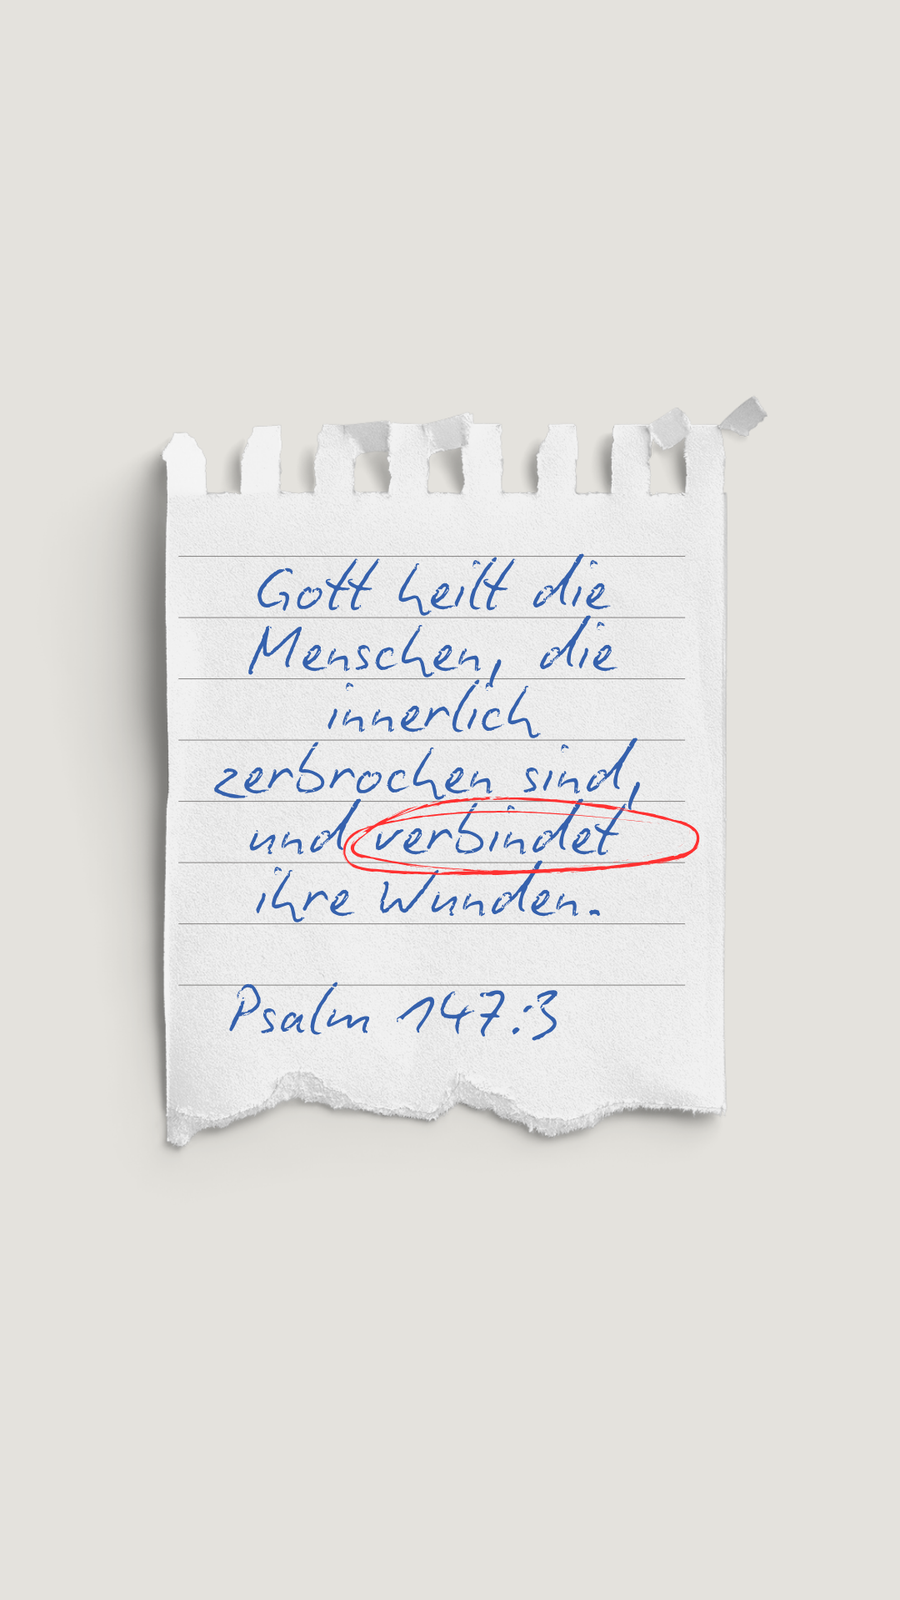 Gott heilt die
Menschen, die
innerlich
zerbrochen sind,
und verbindet
ihre Wunden.
Psalm 147:3